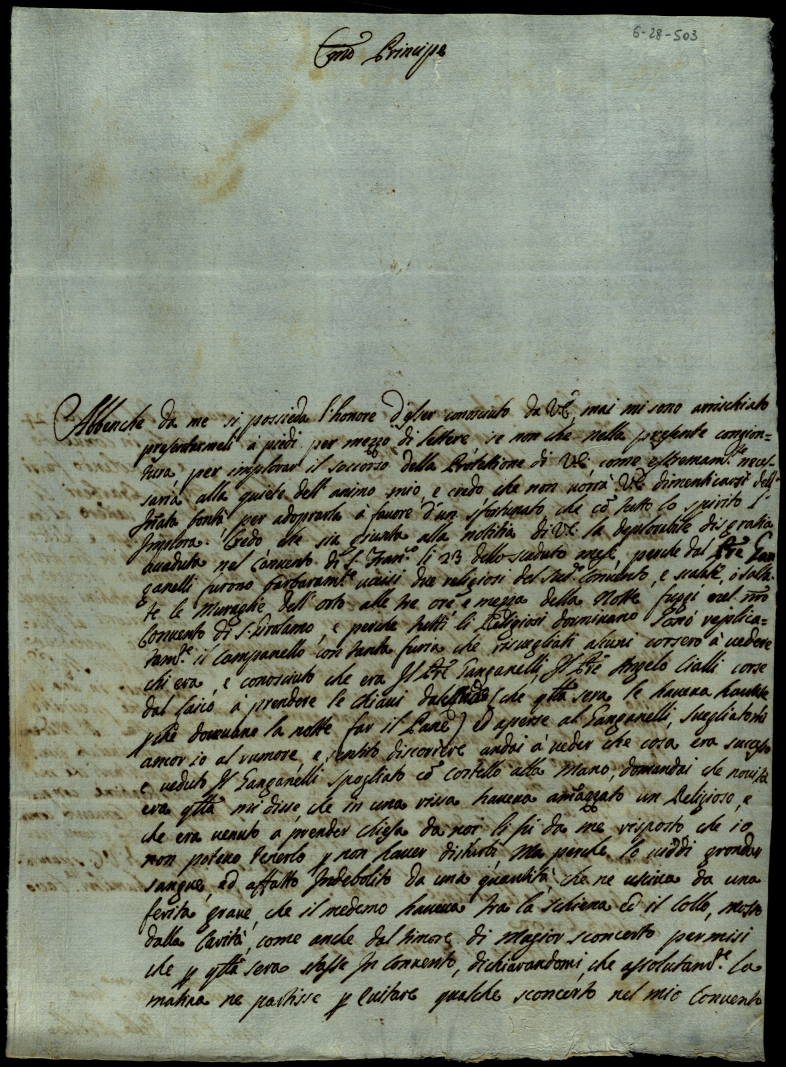 6-28-503
Principe
Abbenche da me si possieda l'honore d'esser conosciuto da VE, mai mi sono arrischiato
presentarmeli à piedi per mezzo di lettere se non che nella presente congion-
tura per implorar il soccorso della Protettione di VE come estremam.te neces-
saria alla quiete dell'animo mio, e credo che non vorrà VE dimenticarsi dell'
bontà per adoprarla à favore d'un sfortunato che cō tutto lo spirito l'
Implora. Credo che sia giunta alla notitia di VE la deplorabile disgratia
accaduta nel Convento di S. Fran.co li 23 dello scaduto mese, perche dal Gan-
ganelli furono barbaram.te uccisi due religiosi del Convento, e scalate, ò salta-
te le Muraglie dell'orto alle tre ore, e mezza della Notte fuggì nel nrō
Convento di S. Girolamo, e perche tutti li Religiosi dormivano sonò replica-
tam.te il Campanello con tanta furia che risvegliati alcuni corsero à vedere
chi era, e conosciuto che era Il Ganganelli, Il Angelo Cialli corse
dal laico à prendere le chiavi (che sera le haveva havute
dovevano la notte far il Pane) ed aperse al Ganganelli, svegliatomi
ancor io al rumore, e sentito discorrere andai à veder che cosa era successo
e veduto Il Ganganelli spogliato cō cortello alla mano, domandai che novità
era mi disse, che in una rissa haveva amazzato un Religioso, e
che era venuto à prender chiesa da noi li fù da me risposto, che io
non potevo tenerlo p non haver disturbi. Ma perche Io viddi grondar
sangue, ed affatto Indebolito da una quantità che ne usciva da una
ferita grave, che il medemo haveva tra la schiena ed il Collo, mosso
dalla Carità, come anche dal timore di magior sconcerto permisi
che p sera stasse In Convento, dichiarandomi che assolutam.te la
matina ne partisse p evitare qualche sconcerto nel mio Convento